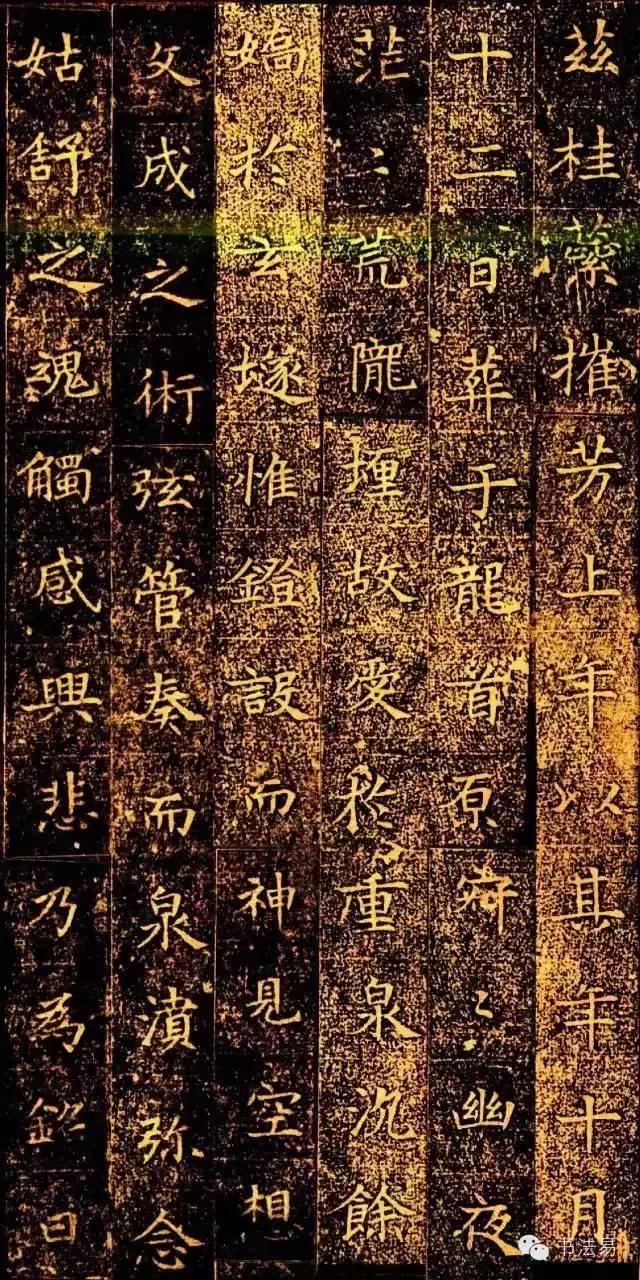 兹桂蘂摧芳上年以其年十月
十二日葬于龍首原寂〻幽夜
茫〻荒隴埋故愛於重泉沉餘
嬌於玄隧惟鐙設而神見空想
文成之術弦管奏而泉濆弥念
姑舒之魂觸感興悲乃為銘曰
书法易